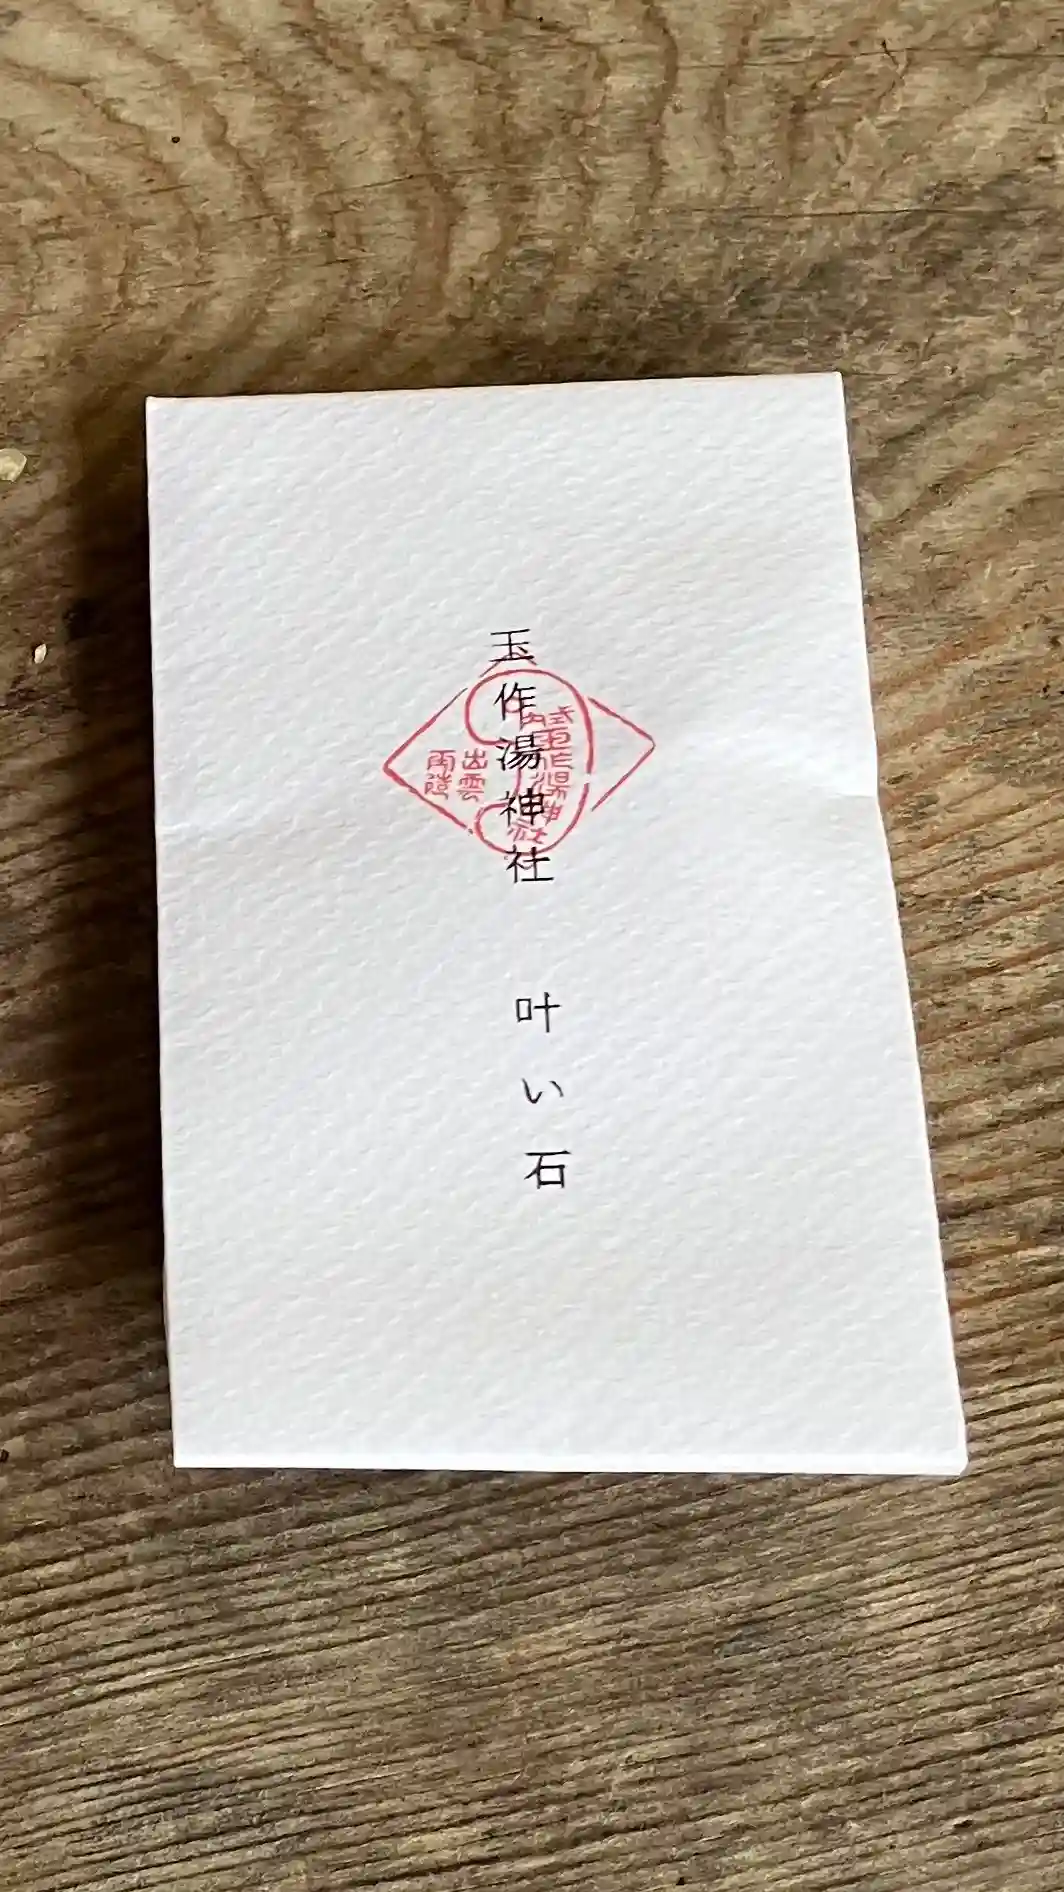 玉作湯神社 叶い石
式内玉作湯神社
出雲